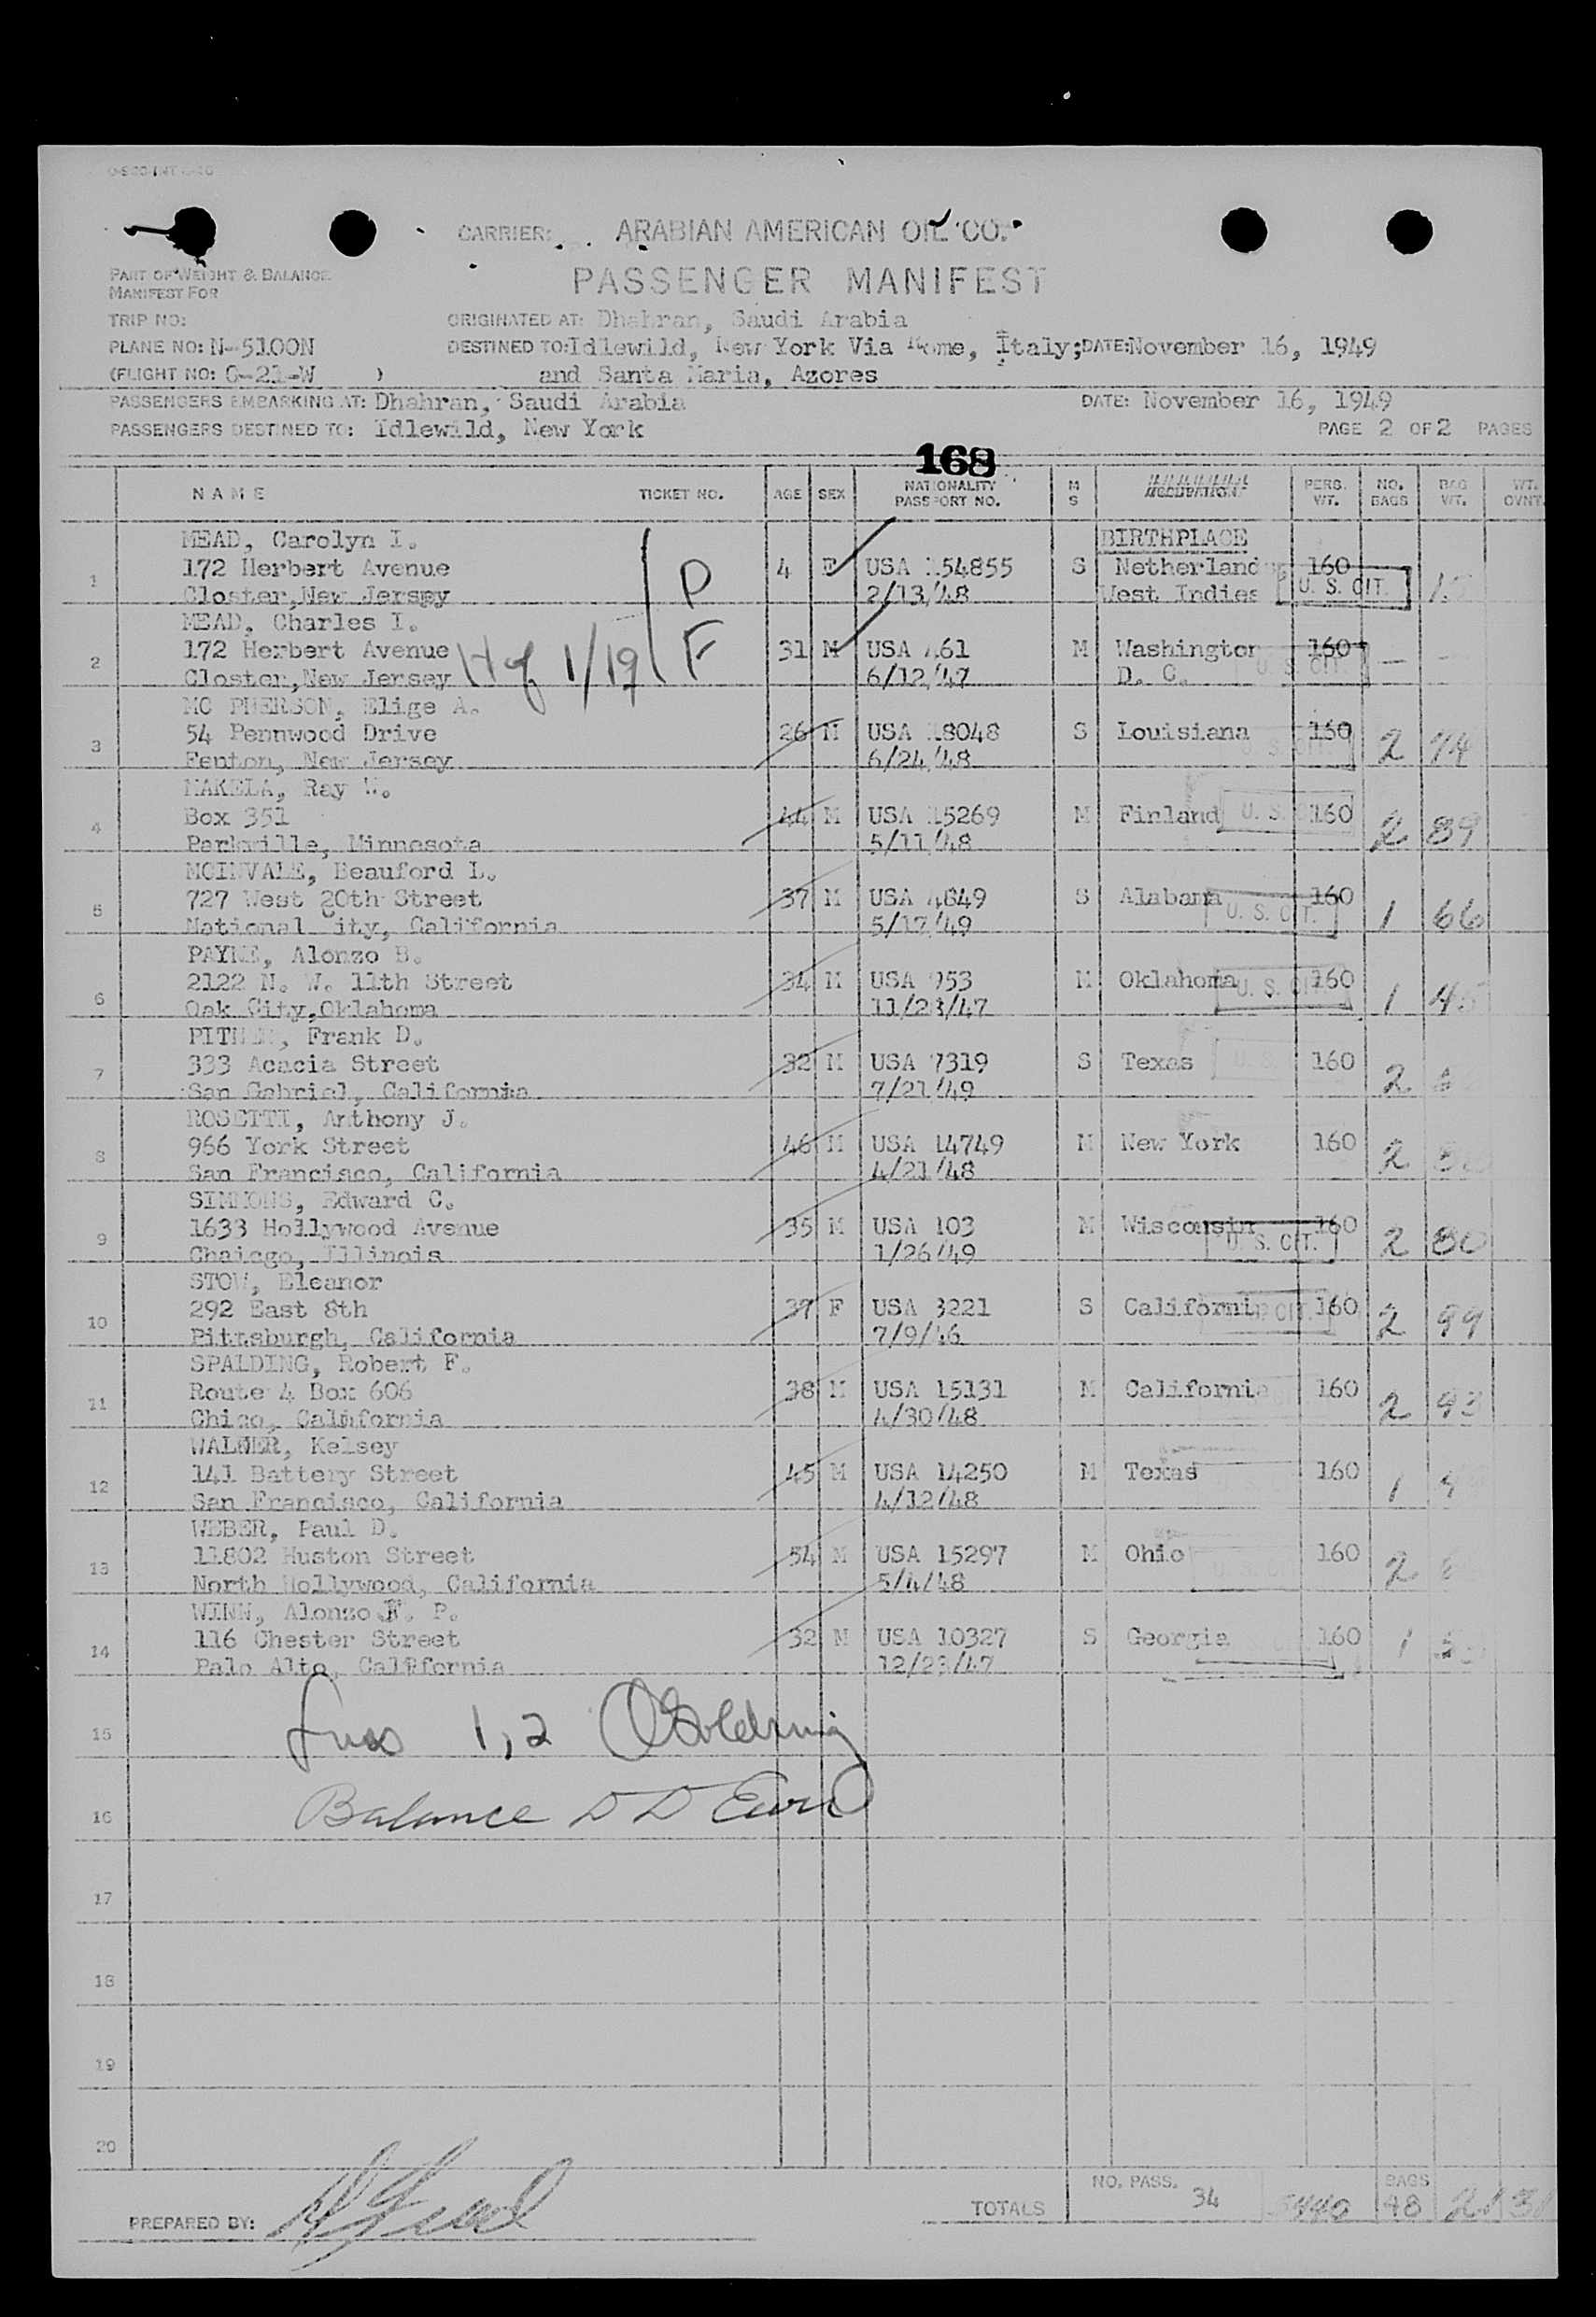 CARRIER: ARABIAN AMERICAN OIL CO.
PART OF WEIGHT & BALANCE
MANIFEST FOR
PASSENGER MANIFEST
TRIP NO:
ORIGINATED AT: Dhahran, Saudi Arabia
PLANE NO: N-5100N
DESTINED TO: Idlewild, New York Via Rome, Italy; DATE: November 16, 1949
(FLIGHT NO: G-21-W )
and Santa Maria, Azores
PASSENGERS EMBARKING AT: Dhahran, Saudi Arabia DATE: November 16, 1949
PASSENGERS DESTINED TO: Idlewild, New York PAGE 2 OF 2 PAGES
168
NAME TICKET NO. AGE SEX NATIONALITY PASSPORT NO. M S OCCUPATION PERS. WT. NO. BAGS BAG WT. WT. OVNT.
MEAD, Carolyn I. BIRTHPLACE
1 172 Herbert Avenue P 4 F USA 54855 S Netherland 160
Closter, New Jersey 2/13/48 West Indies U. S. CIT.
MEAD, Charles I.
2 172 Herbert Avenue 1/19 F 31 M USA 461 M Washington 160 — —
Closter, New Jersey 6/12/47 D. C. U. S. CIT.
MC PHERSON, Elige A.
3 54 Pennwood Drive 26 M USA 8048 S Louisiana 160 2 74
Fenton, New Jersey 6/24/48
MAKELA, Ray W.
4 Box 351 44 M USA 15269 M Finland U. S. 160 2 89
Parkville, Minnesota 5/11/48
MCINVALE, Beauford L.
5 727 West 20th Street 37 M USA 4849 S Alabama 160 1 66
National City, California 5/17/49 U. S. CIT.
PAYNE, Alonzo B.
6 2122 N. W. 11th Street 34 M USA 953 M Oklahoma U. S. CIT. 160 1 45
Oak City, Oklahoma 11/28/47
PITNER, Frank D.
7 333 Acacia Street 32 M USA 7319 S Texas U. S. 160 2
San Gabriel, California 7/21/49
ROSETTI, Anthony J.
8 966 York Street 46 M USA 14749 M New York 160 2
San Francisco, California 4/21/48
SIMMONS, Edward C.
9 1633 Hollywood Avenue 35 M USA 103 M Wisconsin 160 2 80
Chaicgo, Illinois 1/26/49 U. S. CIT.
STOW, Eleanor
10 292 East 8th 37 F USA 3221 S Californi CIT. 160 2 99
Pittsburgh, California 7/9/46
SPALDING, Robert F.
11 Route 4 Box 606 38 M USA 15131 M California 160 2 93
Chico, California 4/30/48
WALKER, Kelsey
12 141 Battery Street 45 M USA 14250 M Texas 160 1
San Francisco, California 4/12/48
WEBER, Paul D.
13 11802 Huston Street 54 M USA 15297 M Ohio 160 2
North Hollywood, California 5/4/48 U. S. CIT.
WINN, Alonzo F. P.
14 116 Chester Street 32 M USA 10327 S Georgia 160 1
Palo Alto, California 12/23/47
15 1,2
16 Balance D D
17
18
19
20
PREPARED BY: TOTALS NO. PASS. 34 5440 BAGS 48 2131